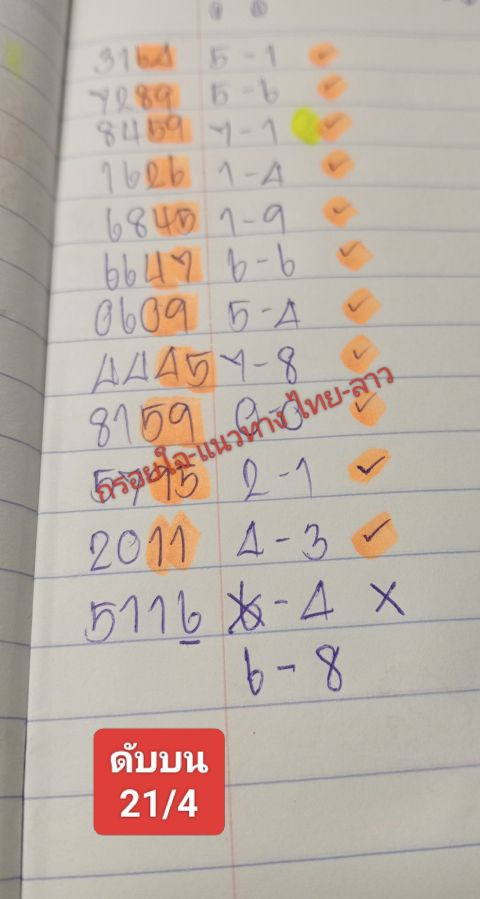 3164 5-1 ✓
7289 5-6 ✓
8459 7-1 ✓
1626 1-4 ✓
6845 1-9 ✓
6647 6-6 ✓
0609 5-4 ✓
4445 7-8 ✓
8159 0-0 ✓
กรอยใจ-แนวทาง ไทย-ลาว
15 2-1 ✓
2011 4-3 ✓
5116 6-4 ×
6-8
ดับบน
21/4